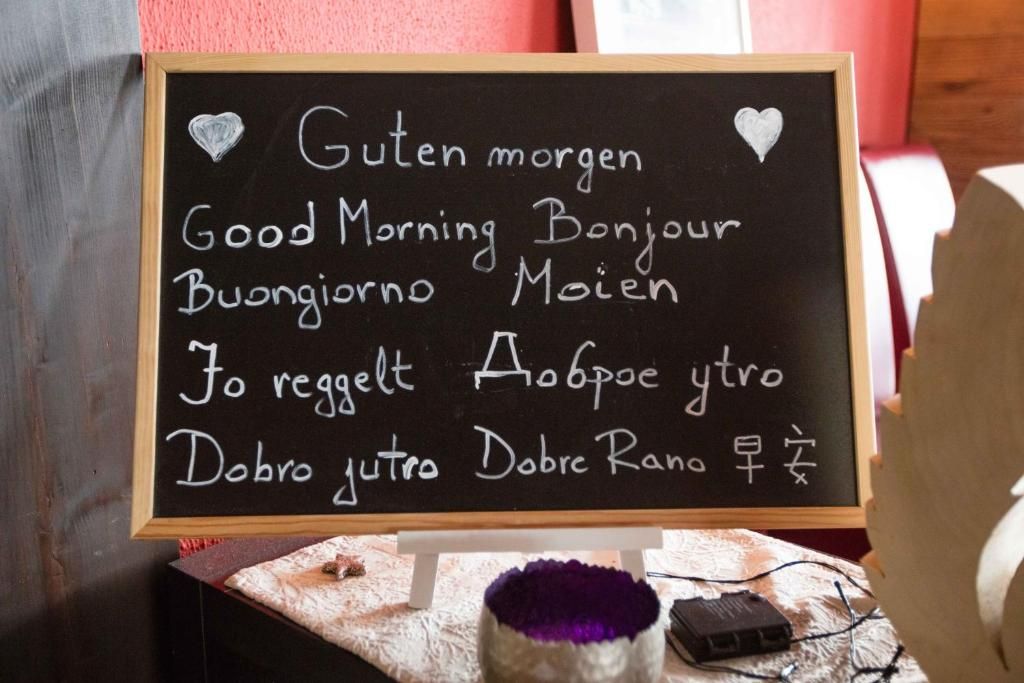 Guten morgen
Good Morning Bonjour
Buongiorno Moïen
Jo reggelt Доброе утро
Dobro jutro Dobre Rano 早安